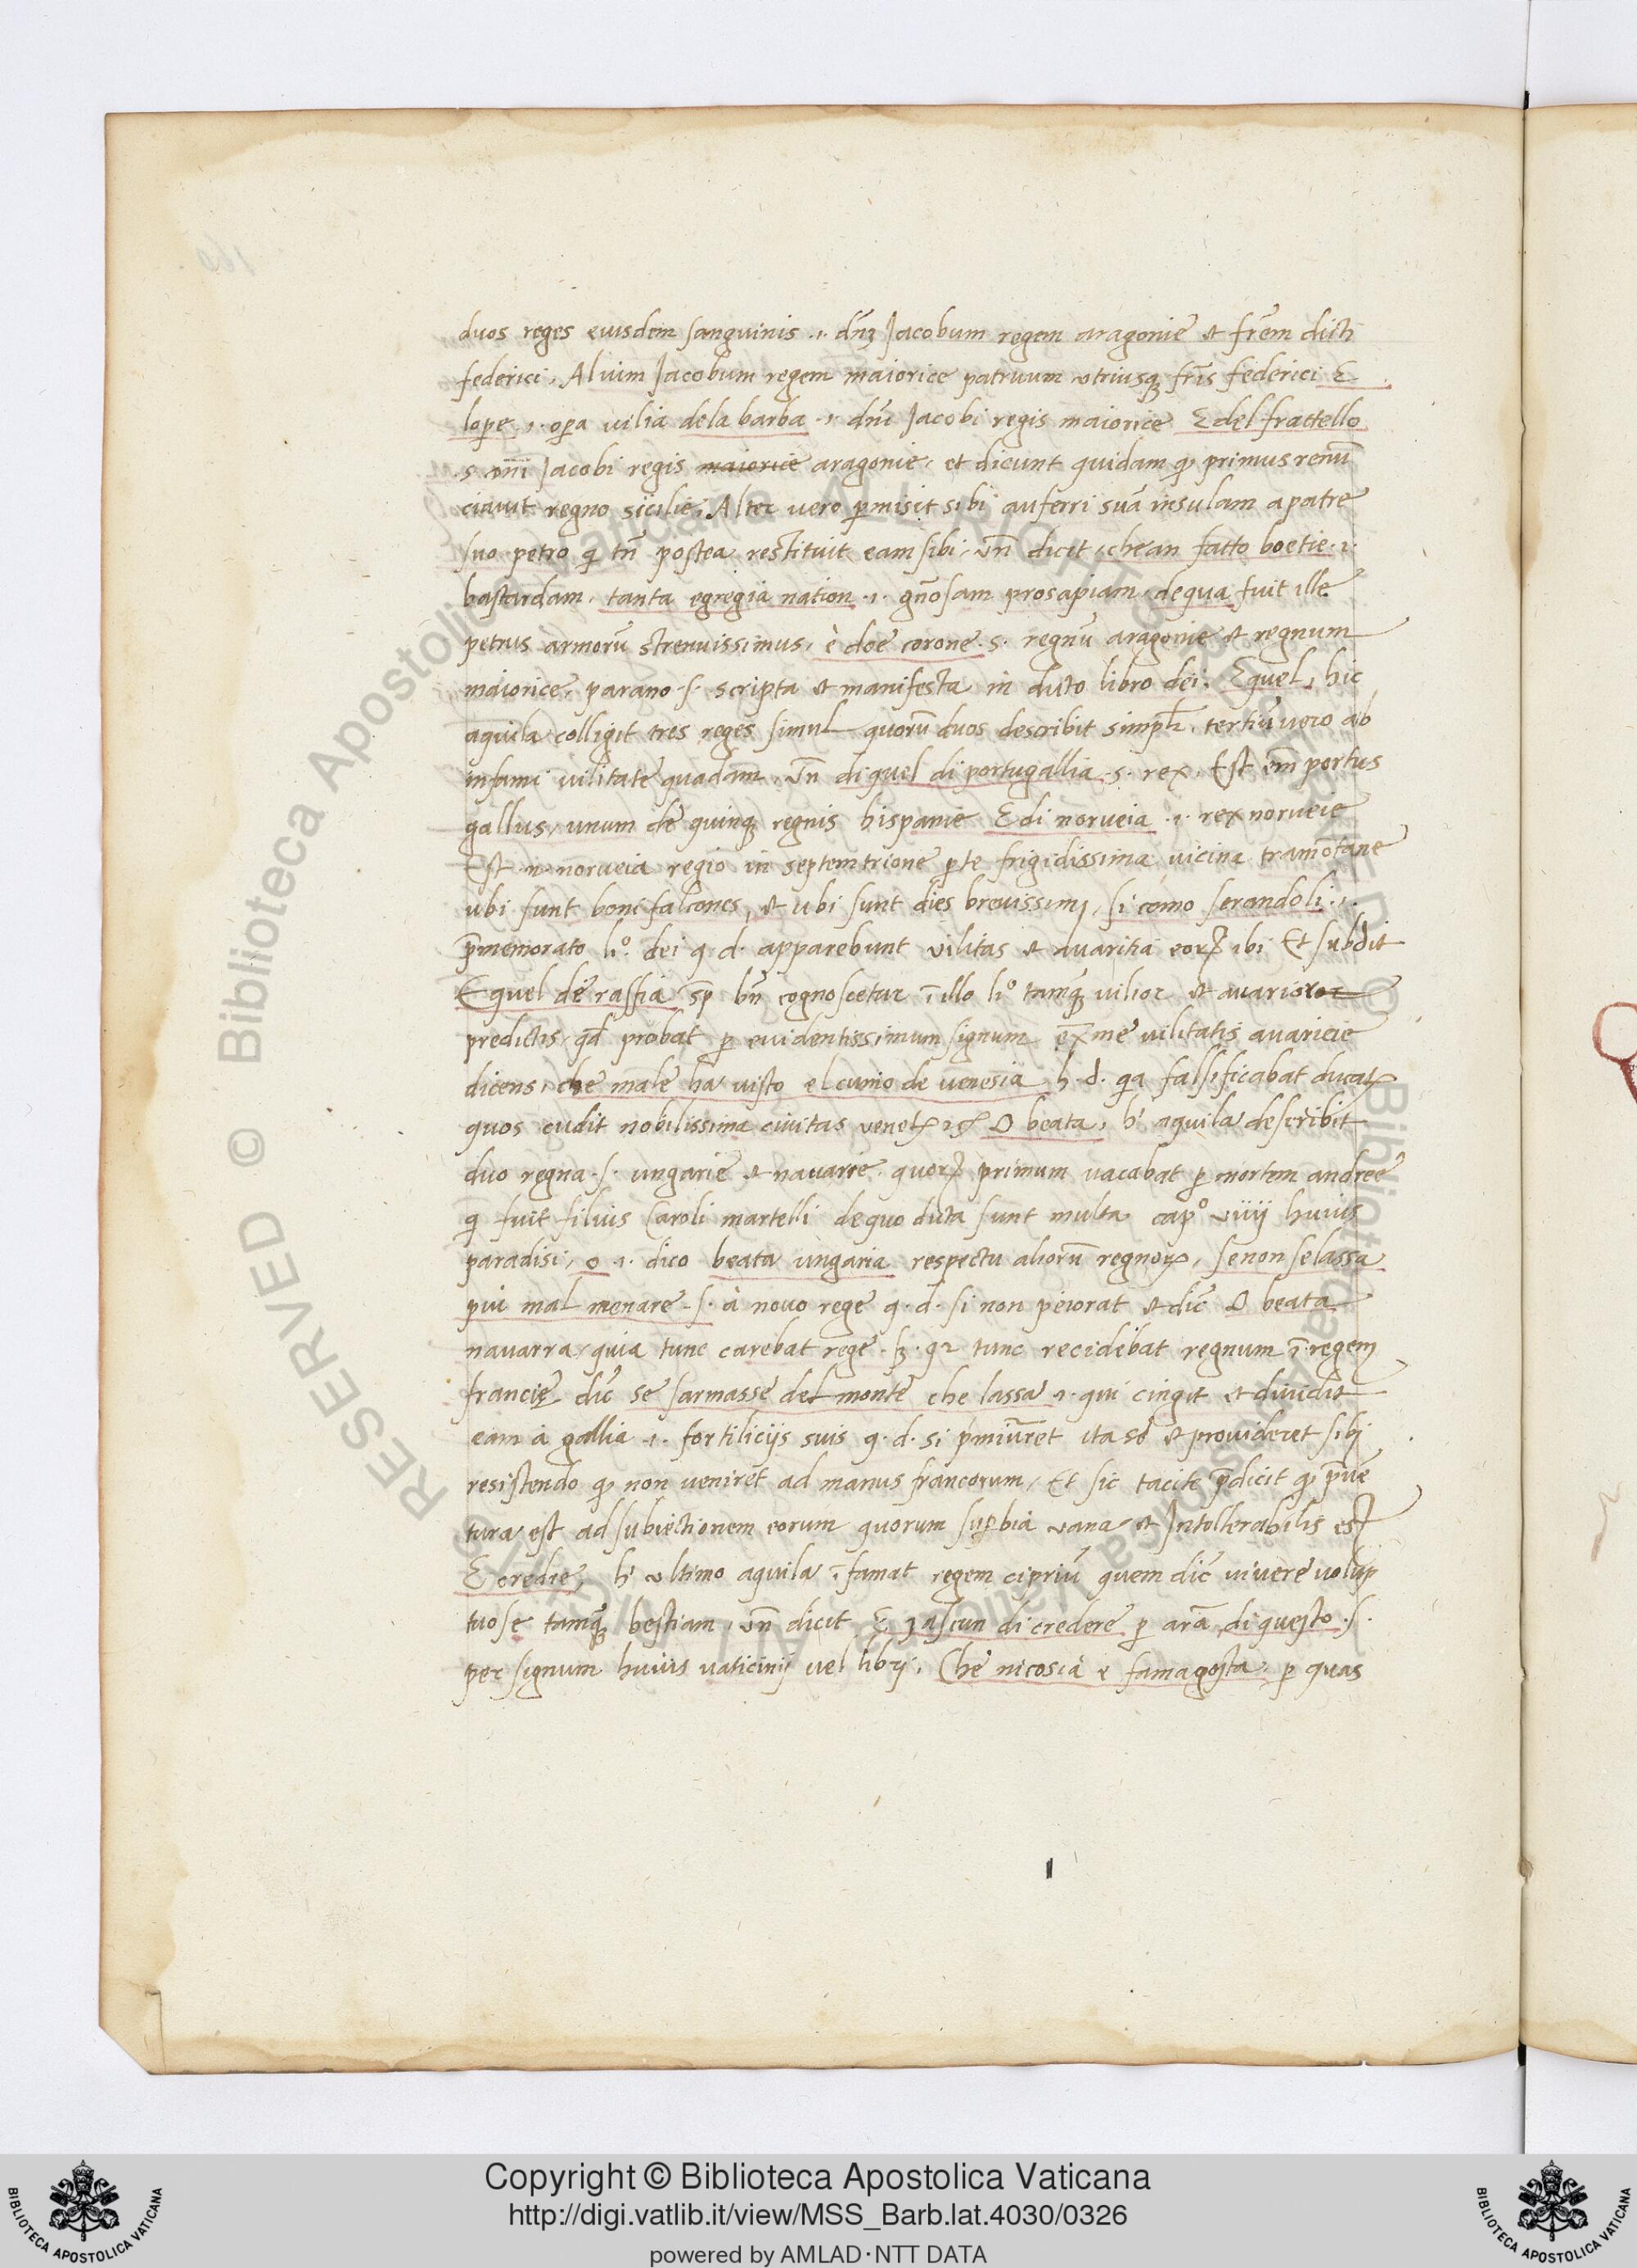 duos reges euisdem sanguinis .i. dn̄ȝ Jacobum regem aragonie et frēm dicti
federici, Alium Jacobum regem maiorice patruum utriusqȝ frīs federici E
lope .i. oꝑa uilia dela barba .i. dnī Jacobi regis maiorice E del frattello
.s. dnī Jacobi regis maiorice aragonie, et dicunt quidam ꝙ primus renū
ciauit regno sicilie, Alter uero ꝑmisit sibi auferri suā insulam a patre
suo petro qͥ tn̄ postea restituit eam sibi, vn̄ dicit, chean fatto boetie .i.
bastardam, tanta egregia nation .i. gn̄osam prosapiam dequa fuit ille
petrus armorū strenuissimus, è doe corone .s. regnū aragonie et regnum
maiorice, parano .s. scripta et manifesta in dicto libro dei, Equel, hic
aquila colligit tres reges simul quorū duos describit simpꝉr, tertiū uero ab
infami uilitate quadam, vn̄ di quel di portugallia .s. rex, Est em̄ portus
gallus, unum de quinqȝ regnis hispanie E di norueia .i. rex norueie
Est .n. norueia regio in septemtrione ꝑte frigidissima uicina tramōtane
ubi sunt boni falcones, et ubi sunt dies breuissimj, si como serandoli .i.
p̄memorato li.º dei q. d. apparebunt uilitas et auaritia eoꝝ ibi Et subdit
E quel de rassia sp̄ bn̄ cognoscetur ī illo liº tamqȝ uilior et auarioror
predictis, qd̄ probat ꝑ euidentissimum signum ex̄me uilitatis auaricie
dicens, che male ha uisto el cunio de uenesia h. d. qͣ falsificabat ducatꝝ
quos cudit nobilissima ciuitas uenetꝝ O beata, h' aquila describit
duo regna .s. ungarie et nauarre quoꝝ primum uacabat ꝑ mortem andree
qͥ fuit filius Caroli martelli dequo dicta sunt multa capº uiiij huius
paradisi, o .i. dico beata ungaria respectu aliorū regnoꝝ, senon selassa
piu mal menare .s. à nouo rege q. d. si non peiorat et dic̄ O beata
nauarra, quia tunc carebat rege .sȝ. qꝛ tunc recidebat regnum ī regem
francie, dic̄ se sarmasse del monte che lassa .i. qui cingit et diuidit
eam à gallia .i. fortiliciis suis q. d. si p̄miūret ita se et prouideret sibj
resistendo ꝙ non ueniret ad manus francorum, Et sic tacite p̄dicit ꝙ p̄ue
tura est ad subiectionem eorum quorum suꝑbia uana et Intollerabilis est
E credre, h' ultimo aquila ī famat regem cipriū quem dic̄ uiuere uolup
tuose tamqȝ bestiam, vn̄ dicit E zascun di credere ꝑ arā di questo .s.
per signum huius uaticinij uel librj, Che nicosia e famagosta, ꝑ quas
RESERVED © Biblioteca Apostolica Vaticana
Copyright © Biblioteca Apostolica Vaticana
http://digi.vatlib.it/view/MSS_Barb.lat.4030/0326
powered by AMLAD·NTT DATA
BIBLIOTECA APOSTOLICA VATICANA
BIBLIOTECA APOSTOLICA VATICANA